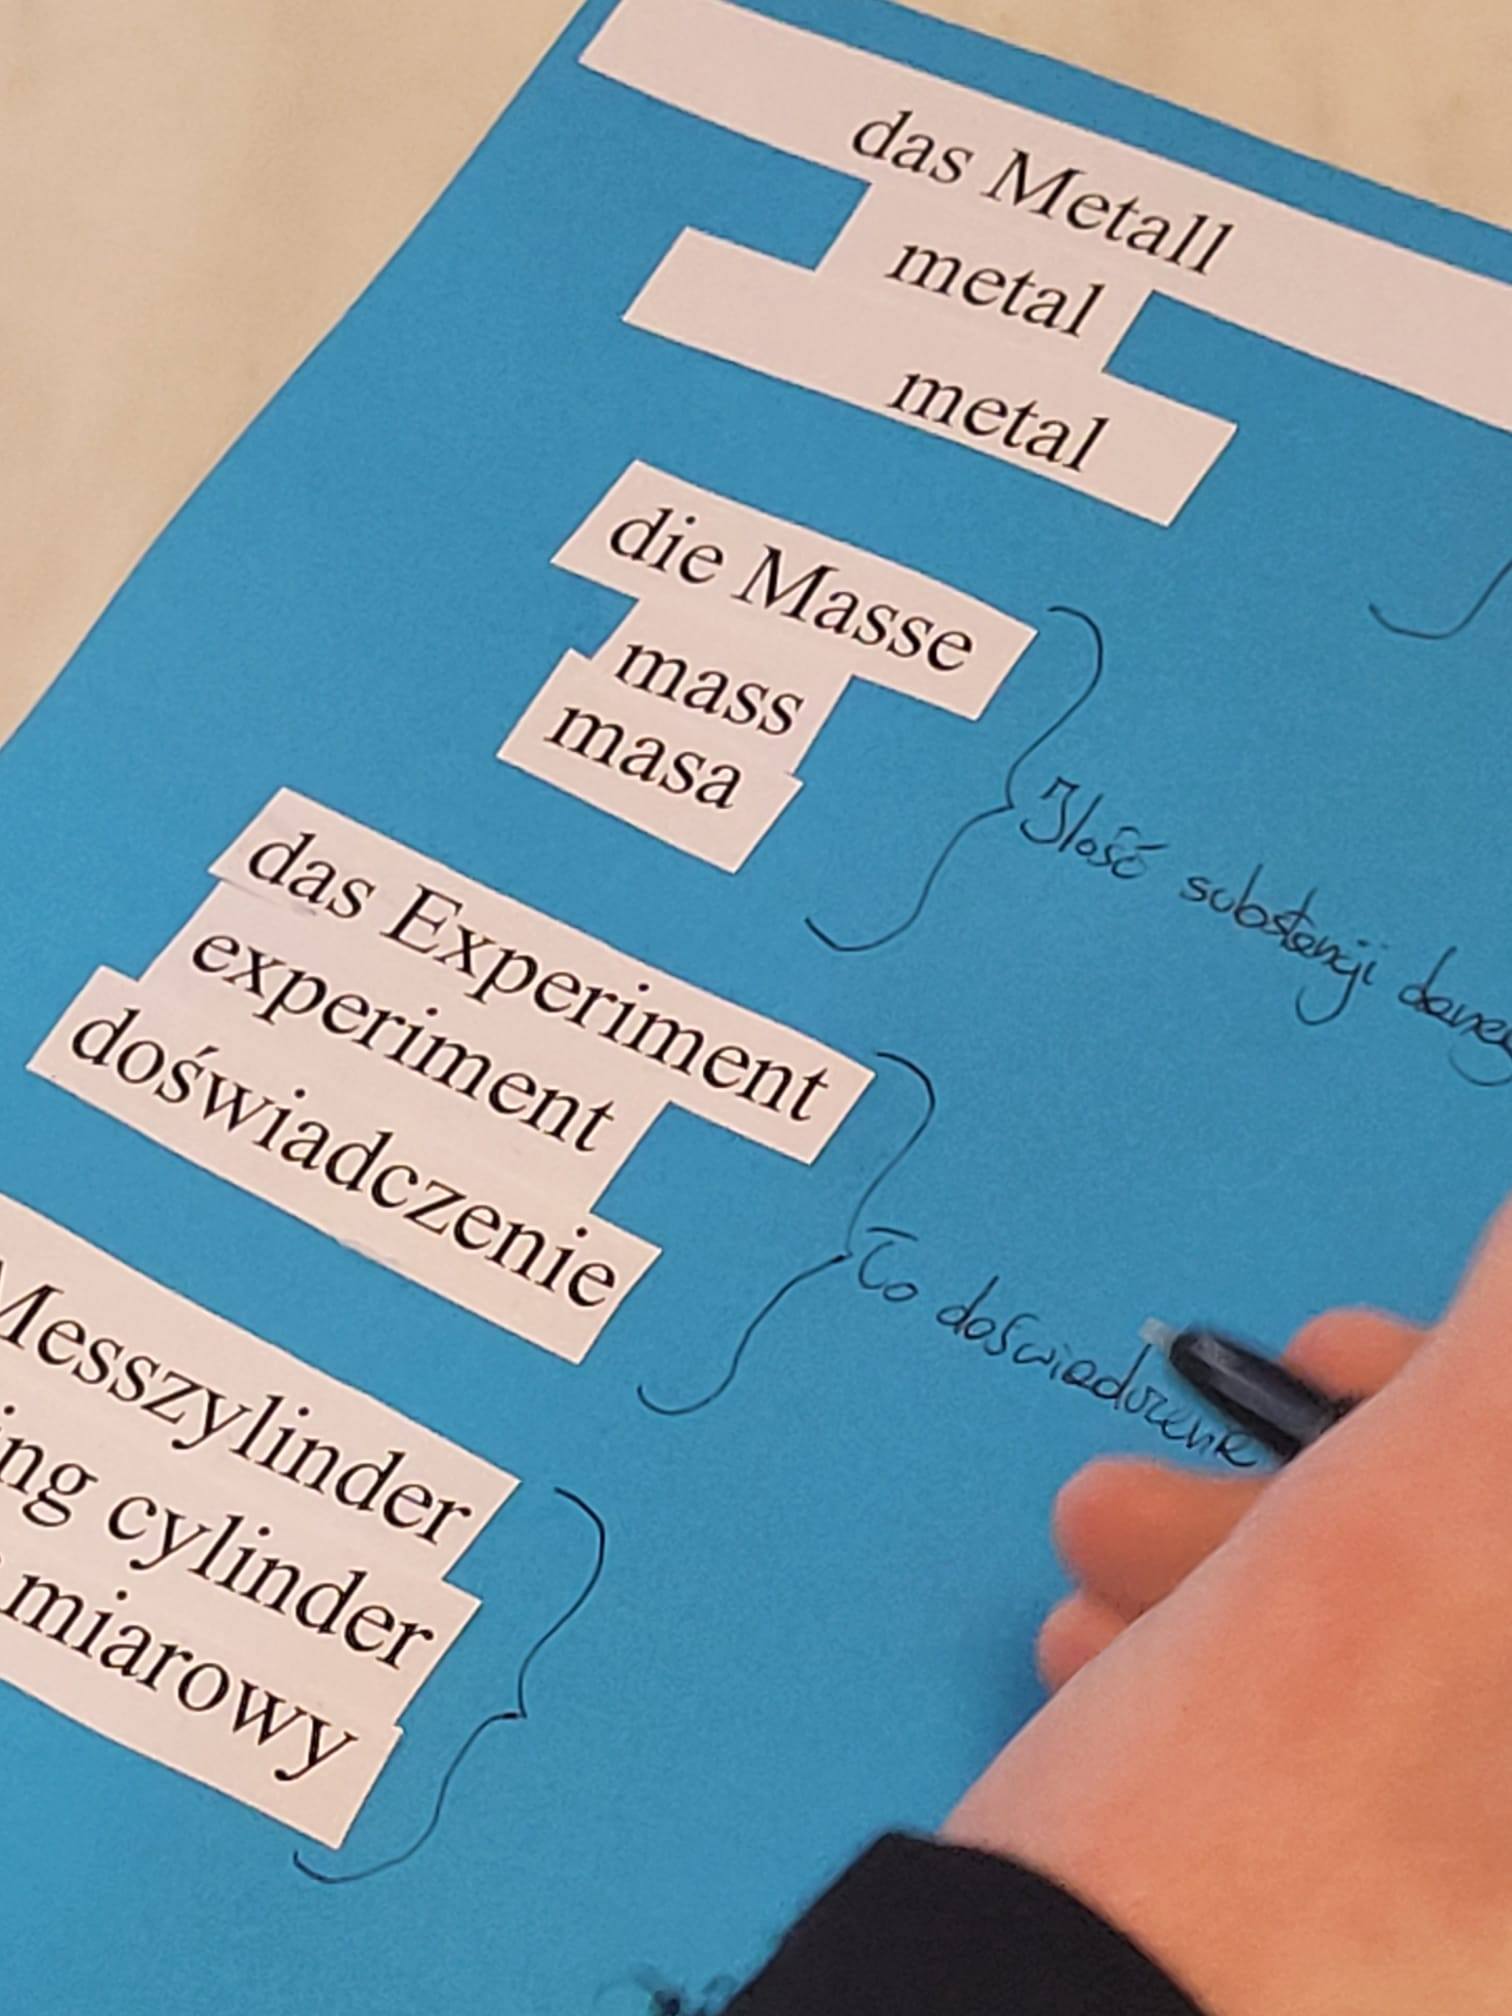 das Metall
metal
metal
die Masse
mass
masa
Ilość substancji danej
das Experiment
experiment
doświadczenie
To doświadczenie
Messzylinder
ing cylinder
miarowy